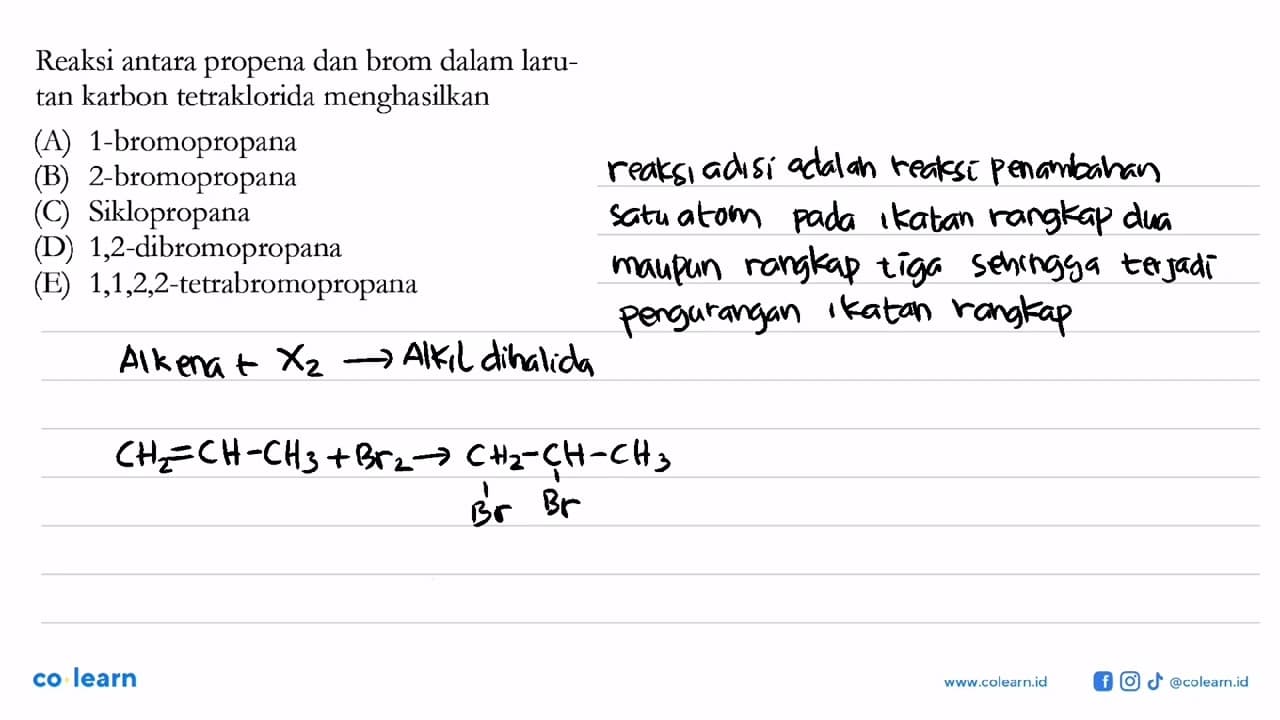 Reaksi antara propena dan brom dalam laru-
tan karbon tetraklorida menghasilkan
(A) 1-bromopropana
(B) 2-bromopropana
(C) Siklopropana
(D) 1,2-dibromopropana
(E) 1,1,2,2-tetrabromopropana
reaksi adisi adalah reaksi penambahan
satu atom pada ikatan rangkap dua
maupun rangkap tiga sehingga terjadi
pengurangan ikatan rangkap
Alkena + X₂ → Alkil dihalida
CH₂=CH-CH₃ + Br₂ → CH₂-CH-CH₃
Br Br
co learn
www.colearn.id @colearn.id